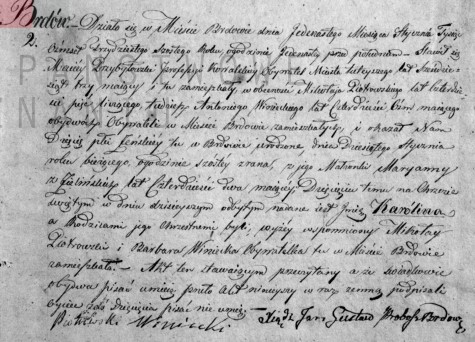 Brdów.
2. Działo się w Mieście Brdowie dnia Jedenastego Miesiąca Stycznia Tysiąc
Ośmset Trzydziestego Szóstego Roku, o godzinie Jedenastej przed południem. Stawił się
Maciej Przybylowski Obywatel Miasta tutejszego lat Sześćdzie-
siąt trzy mający i tu zamieszkały, w obecności Mikołaja Piotrowskiego lat Czterdzieści
pięć liczącego tudzież Antoniego Winieckiego lat Czterdzieści mającego
obydwóch Obywateli w Mieście Brdowie zamieszkałych, i okazał Nam
Dziecię płci żeńskiej tu w Brdowie urodzone dnia Dziesiątego Stycznia
roku bieżącego, o godzinie szóstej zrana, z jego Małżonki Maryanny
z lat Czterdzieści dwa mającej. Dziecięciu temu na Chrzcie
świętym w dniu dzisiejszym odbytym nadane jest Imię Karolina
a Rodzicami jego Chrzestnemi byli, wyżej wspomniony Mikołaj
Piotrowski i Barbara Winiecka Obywatelka tu w Mieście Brdowie
zamieszkała. Akt ten stawającym przeczytany a że świadkowie
obydwa pisać umieją przeto Akt niniejszy w raz zemną podpisali
Ojciec zaś dziecięcia pisać nie umie.
Piotrowski Winiecki Ksiądz Jan Gustaw Probosz Brdow